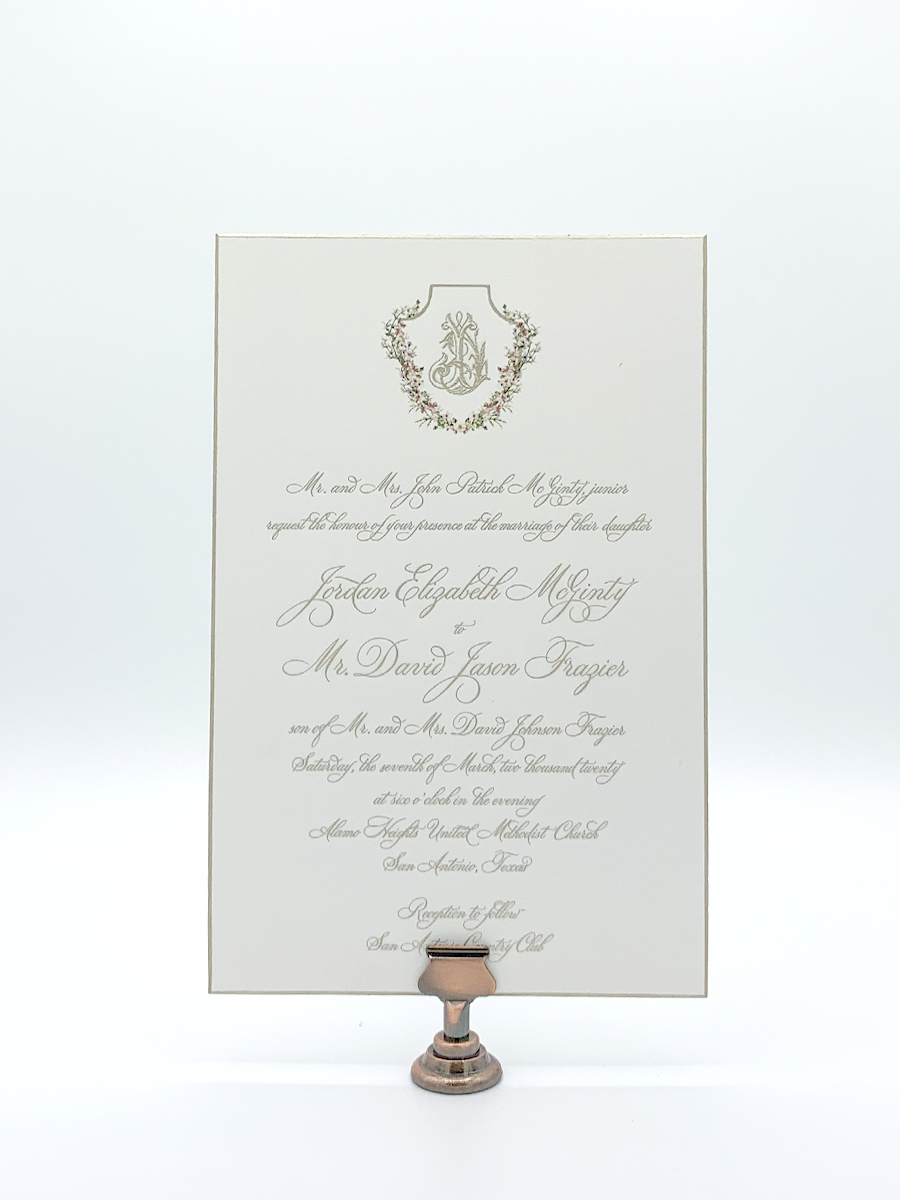 Mr. and Mrs. John Patrick McGinty, junior
request the honour of your presence at the marriage of their daughter
Jordan Elizabeth McGinty
to
Mr. David Jason Frazier
son of Mr. and Mrs. David Johnson Frazier
Saturday, the seventh of March, two thousand twenty
at six o'clock in the evening
Alamo Heights United Methodist Church
San Antonio, Texas
Reception to follow
San Antonio Country Club